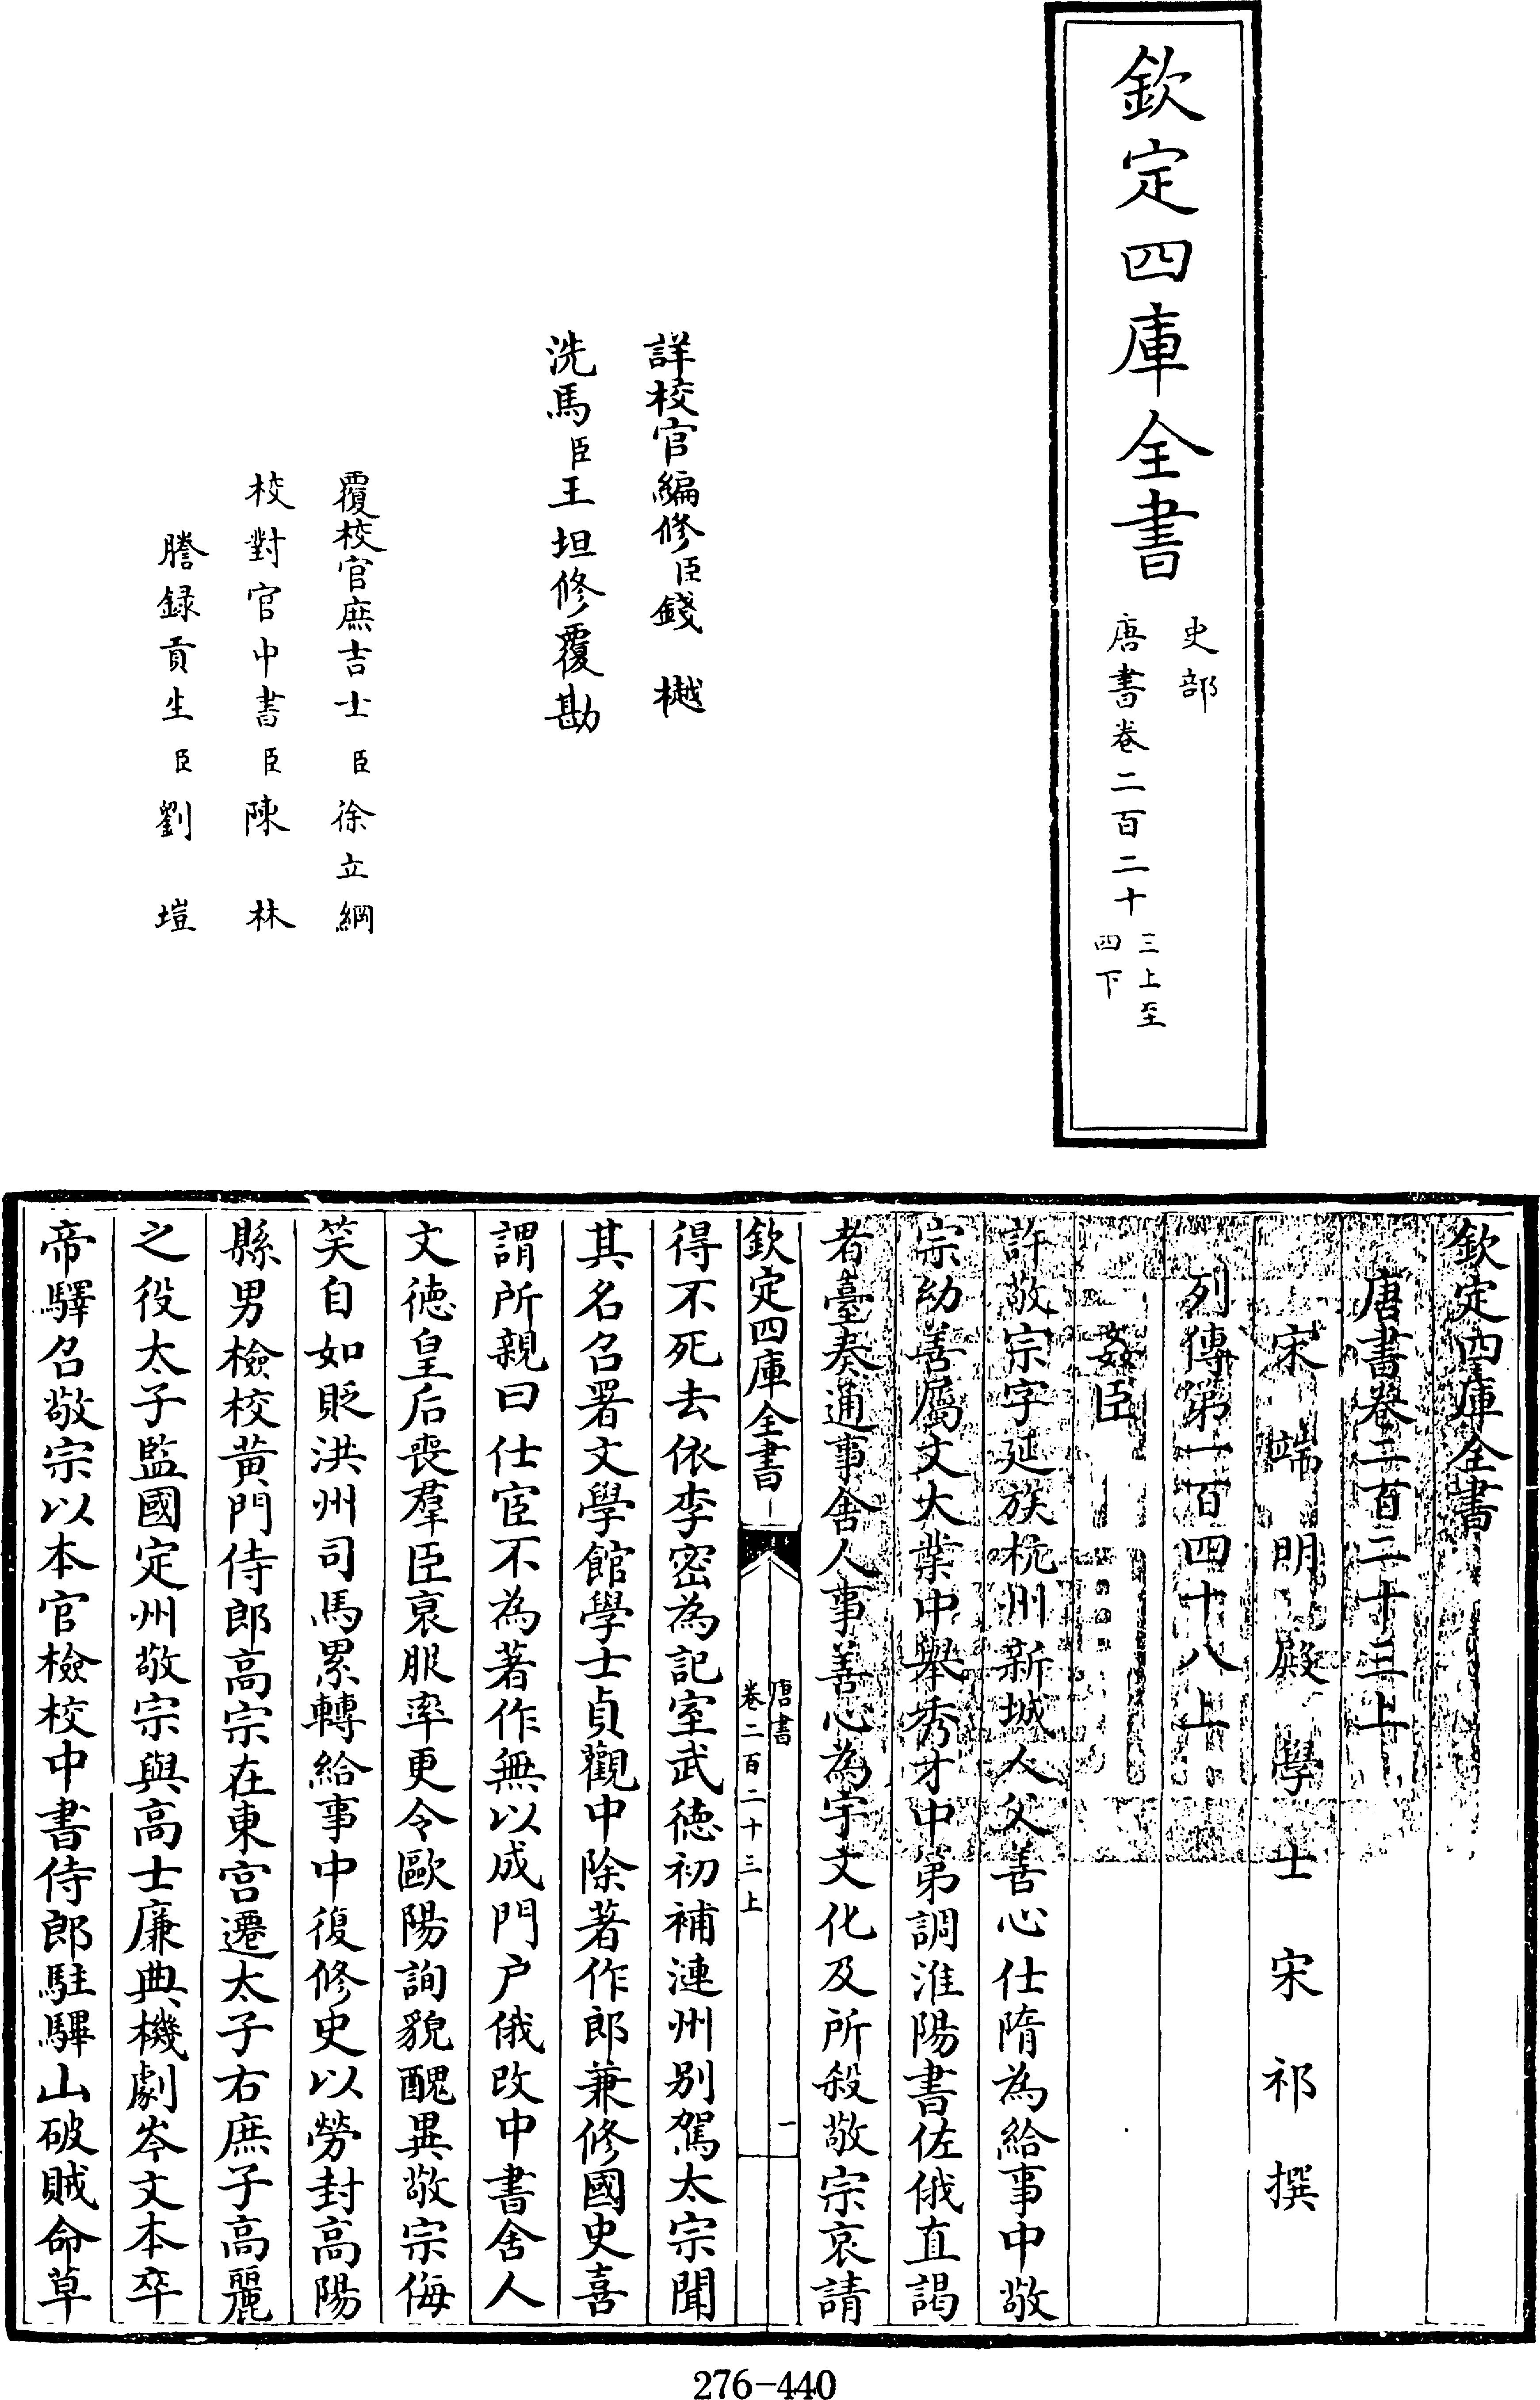 欽定四庫全書
史部
唐書卷二百二十
三上至
四下
詳校官編修臣錢樾
洗馬臣王坦修覆勘
覆校官庶吉士臣徐立綱
校對官中書臣陳林
謄録貢生臣劉塏
欽定四庫全書
唐書卷二百二十三上
宋端明殿學士宋祁撰
列傳第一百四十八上
姦臣
許敬宗字延族杭州新城人父善心仕隋為給事中敬
宗幼善屬文大業中舉秀才中第調淮陽書佐俄直謁
者臺奏通事舍人事善心為宇文化及所殺敬宗哀請
欽定四庫全書
唐書
卷二百二十三上
一
得不死去依李密為記室武徳初補漣州别駕太宗聞
其名召署文學館學士貞觀中除著作郎兼修國史喜
謂所親曰仕宦不為著作無以成門户俄改中書舍人
文徳皇后喪羣臣衰服率更令歐陽詢貌醜異敬宗侮
笑自如貶洪州司馬累轉給事中復修史以勞封高陽
縣男檢校黄門侍郎高宗在東宫遷太子右庶子高麗
之役太子監國定州敬宗與高士廉典機劇岑文本卒
帝驛召敬宗以本官檢校中書侍郎駐驆山破賊命草
276-440